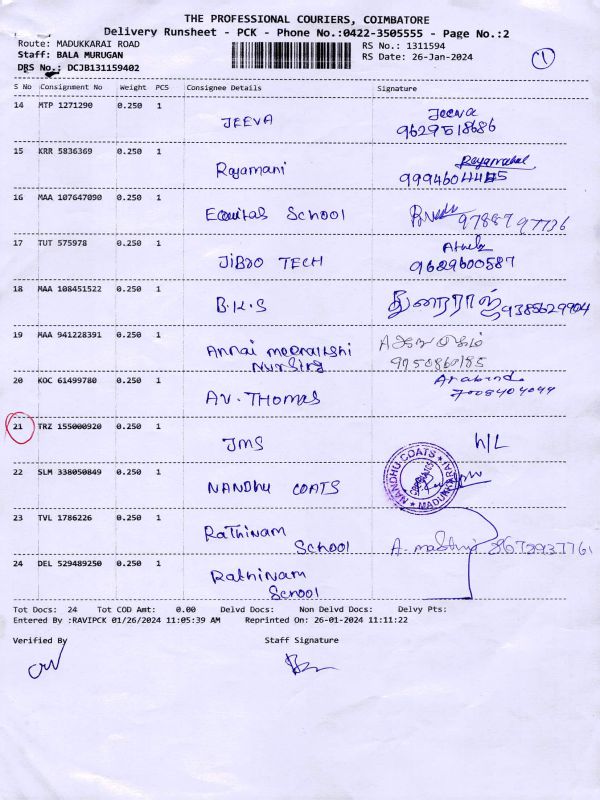 THE PROFESSIONAL COURIERS, COIMBATORE
Delivery Runsheet - PCK - Phone No.:0422-3505555 - Page No.:2
Route: MADUKKARAI ROAD
RS No.: 1311594
Staff: BALA MURUGAN
RS Date: 26-Jan-2024
DRS No.: DCJB131159402
1
S No Consignment No Weight PCS Consignee Details Signature
14 MTP 1271290 0.250 1
JEEVA
Jeeva
9629518686
15 KRR 5836369 0.250 1
Rajamani
16 MAA 107647090 0.250 1
Equitas School
9788797736
17 TUT 575978 0.250 1
JIBDO TECH
9629600587
18 MAA 108451522 0.250 1
B.K.S
துரைராஜ் 9385629904
19 MAA 941228391 0.250 1
Annai meenatchi
Nursing
9750860185
20 KOC 61499780 0.250 1
AV. THOMAS
Arabind
7008404044
21 TRZ 155000920 0.250 1
JMS
h/L
22 SLM 338050849 0.250 1
NANDHU COATS
NANDHU COATS
MADUKKARAI
23 TVL 1786226 0.250 1
Rathinam
School
24 DEL 529489250 0.250 1
Rathinam
School
Tot Docs: 24 Tot COD Amt: 0.00 Delvd Docs: Non Delvd Docs: Delvy Pts:
Entered By :RAVIPCK 01/26/2024 11:05:39 AM Reprinted On: 26-01-2024 11:11:22
Verified By Staff Signature